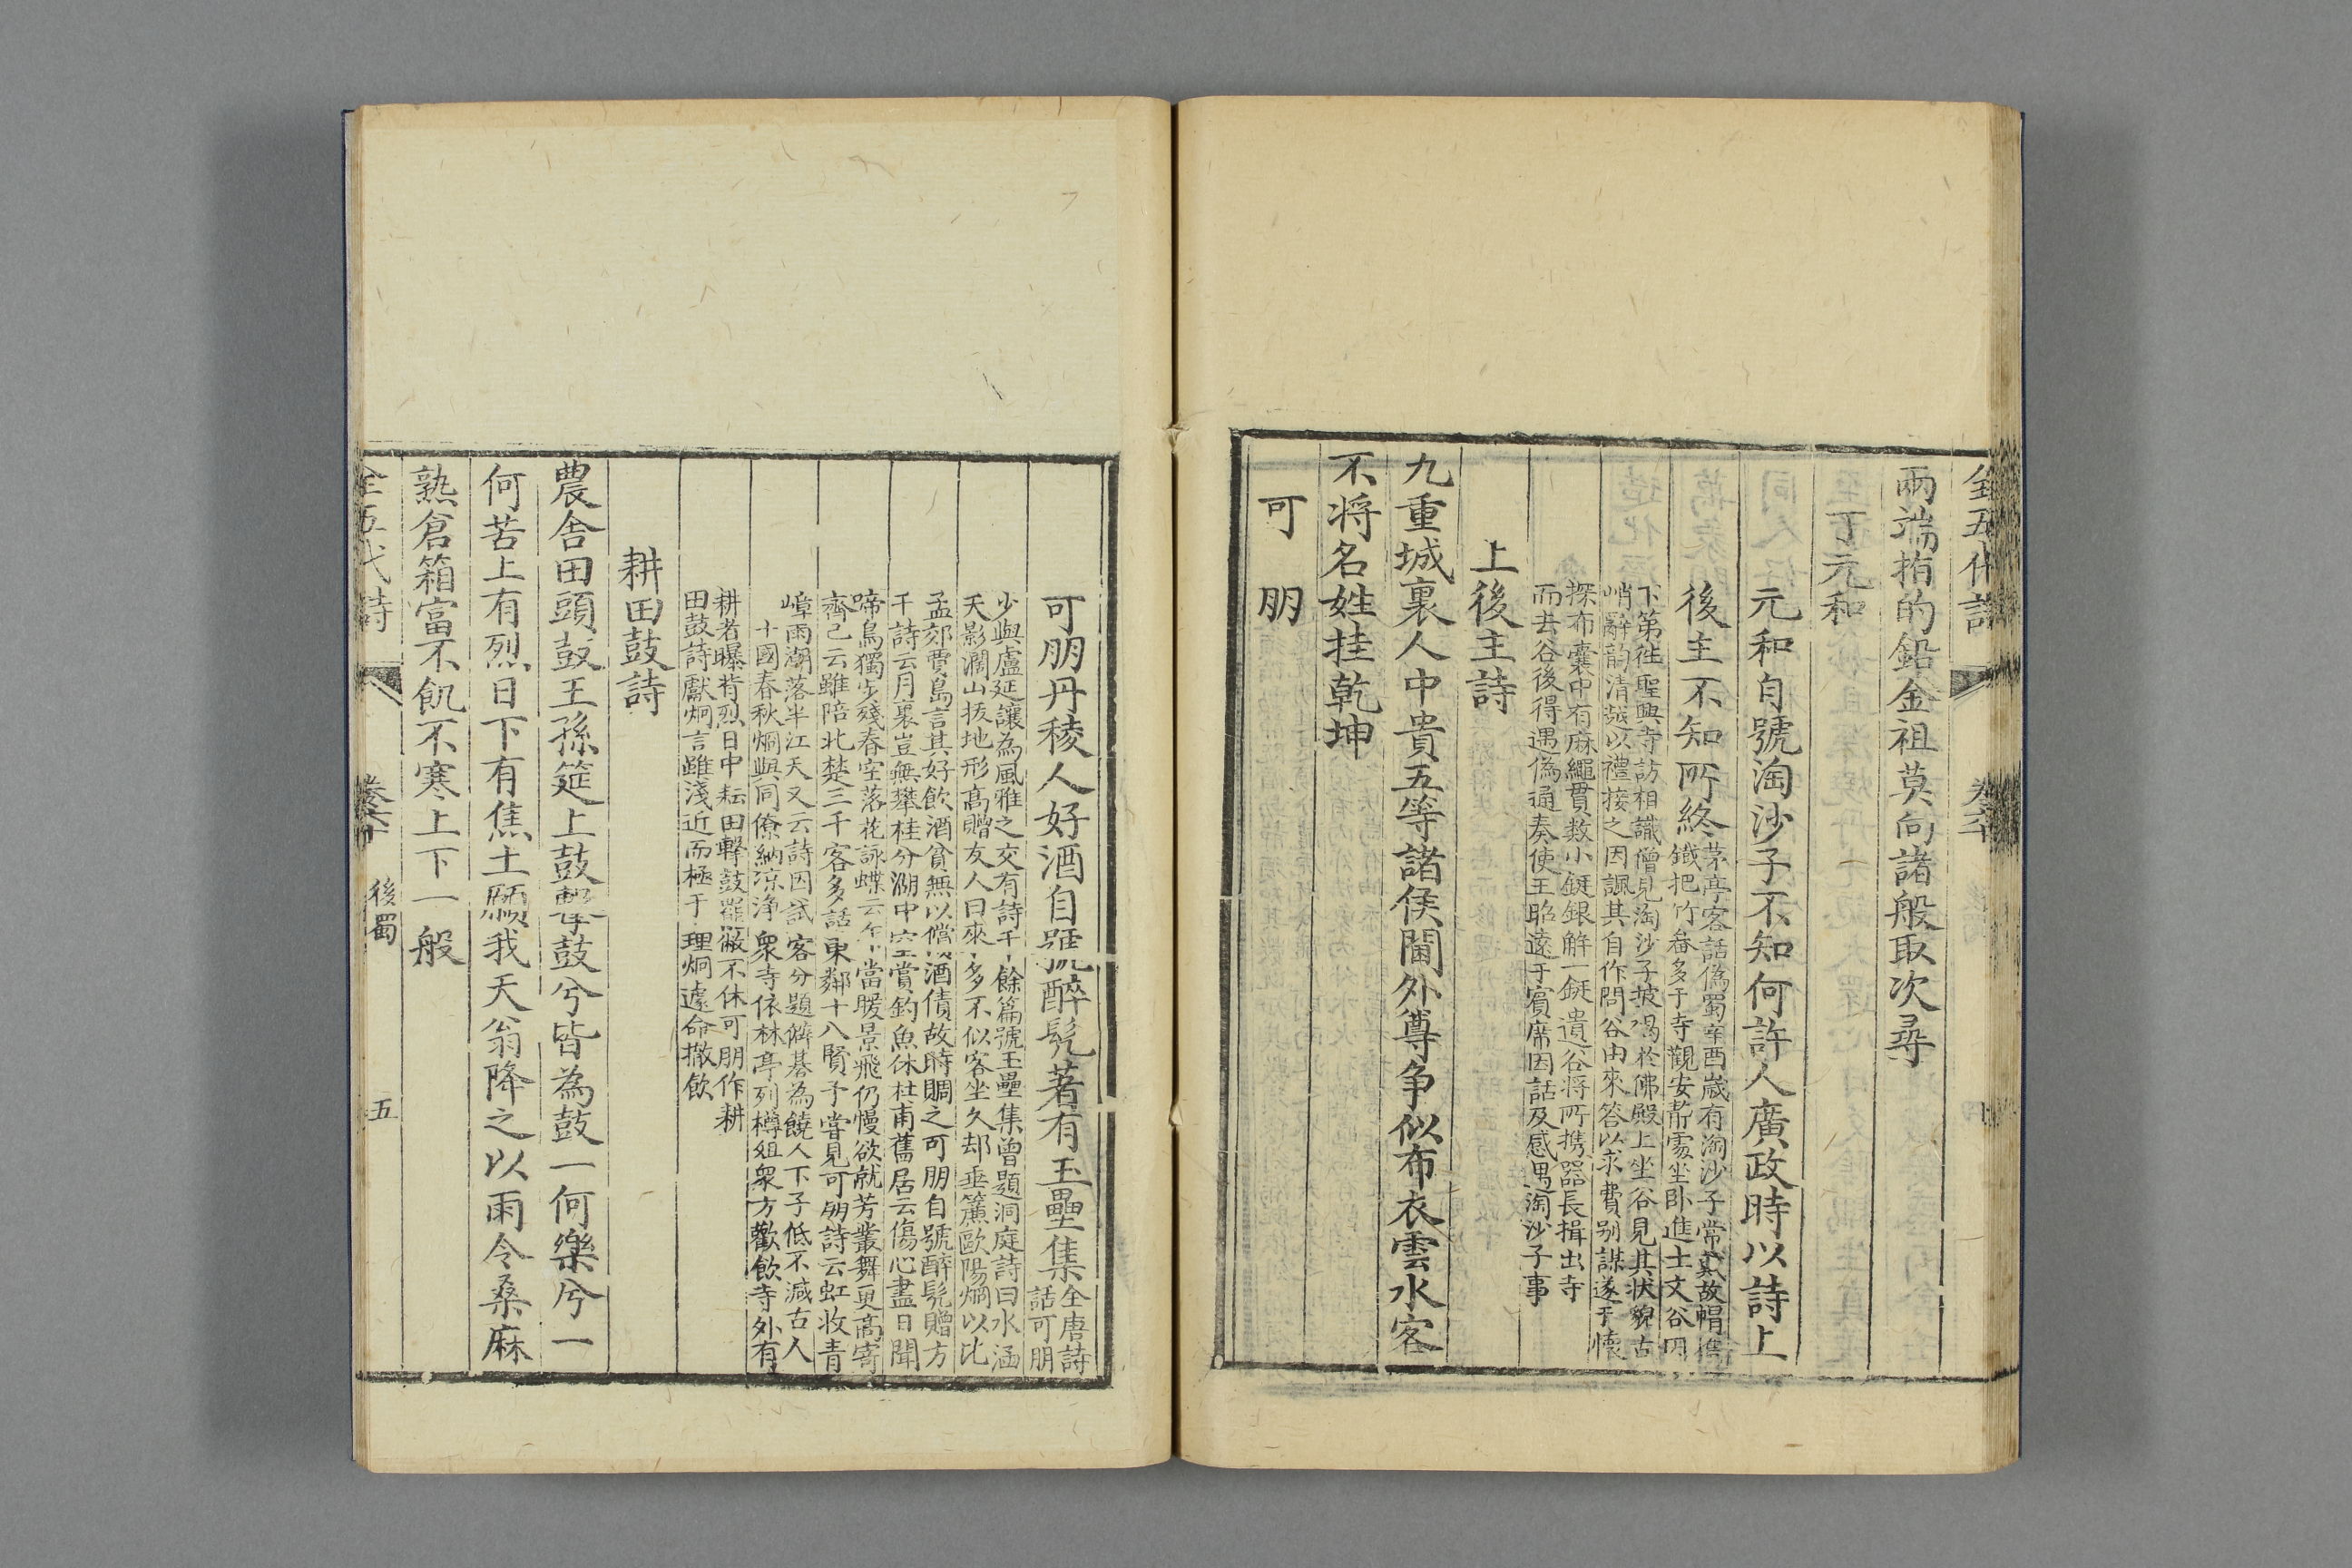 全五代詩 卷六十
兩端拍的鉛金祖莫向諸般取次尋
丁元和
元和自號淘沙子不知何許人廣政時以詩上
後主不知所終
茅亭客話偽蜀辛酉歲有淘沙子常戴故帽携
鐵把竹畚多于寺觀安
處坐卧進士文谷因
下第往聖興寺訪相識僧見淘沙子披褐於佛殿上坐谷見其狀貌古
峭辭韵清越以禮接之因諷其自作問谷由來答以求費别謀遂于懷
探布囊中有麻繩貫数小鋌銀解一鋌遺谷将所携器長揖出寺
而去谷後得遇偽通奏使王昭遠于賓席因話及感遇淘沙子事
上後主詩
九重城裏人中貴五等諸侯閫外尊争似布衣雲水客
不将名姓挂乾坤
可朋
可朋丹稜人好酒自號醉髠著有玉壘集
全唐詩
話可朋
少與盧延讓為風雅之交有詩千餘篇號玉壘集曾題洞庭詩曰水涵
天影濶山拔地形高贈友人曰來多不似客坐久却垂簾歐陽烱以比
孟郊賈島言其好飲酒貧無以償酒債故時賙之可朋自號醉髠贈方
干詩云月裏豈無攀桂分湖中空賞釣魚休杜甫舊居云傷心盡日聞
啼鳥獨步殘春空落花詠蝶云乍當暖景飛仍慢欲就芳叢舞更高寄
齊己云雖陪北楚三千客多話東鄰十八賢予嘗見可朋詩云虹收青
嶂雨潮落半江天又云詩因試客分題僻棊為饒人下子低不減古人
十國春秋烱與同僚納凉淨衆寺依林亭列樽俎衆方歡飲寺外有
耕者曝背烈日中耘田擊鼓罷敝不休可朋作耕
田鼓詩獻烱言雖淺近而極于理烱遽命撤飲
耕田鼓詩
農舎田頭鼓王孫筵上鼓擊鼓兮皆為鼓一何樂兮一
何苦上有烈日下有焦土願我天翁降之以雨令桑麻
熟倉箱富不飢不寒上下一般
全五代詩 卷六十 後蜀 五